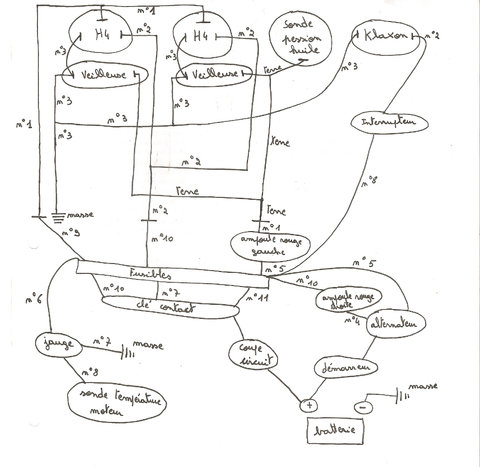 n°1
H4
n°2
H4
n°2
sonde
pession
huile
Klaxon
n°2
n°3
n°3
n°3
Veilleuse
Veilleuse
terre
n°3
n°3
n°1
n°3
n°3
terre
Interrupteur
n°2
n°8
terre
n°2
terre
masse
n°1
n°9
n°10
ampoule rouge
gauche
n°5
n°5
Fusibles
n°10
n°7
n°11
n°10
ampoule rouge
droite
n°6
clé contact
n°4
alternateur
jauge
n°7
masse
coupe
circuit
n°8
démarreur
sonde température
moteur
+
-
masse
batterie